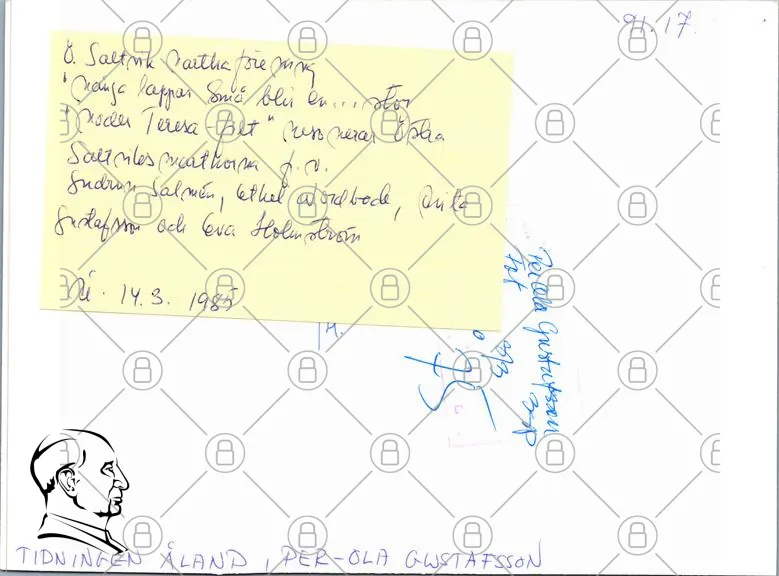 91.17
Ö. Saltvik marthaförening
"många lappar små blir en... stor
"moder Teresa-filt" resonerar Östra
Saltviks marthorna f.v.
Gudrun Salmén, Ethel Nordbode, Anita
Gustafsson och Eva Holmström
Nå. 14.3. 1985
Per Ola Gustafsson
TIDNINGEN ÅLAND, PER-OLA GUSTAFSSON